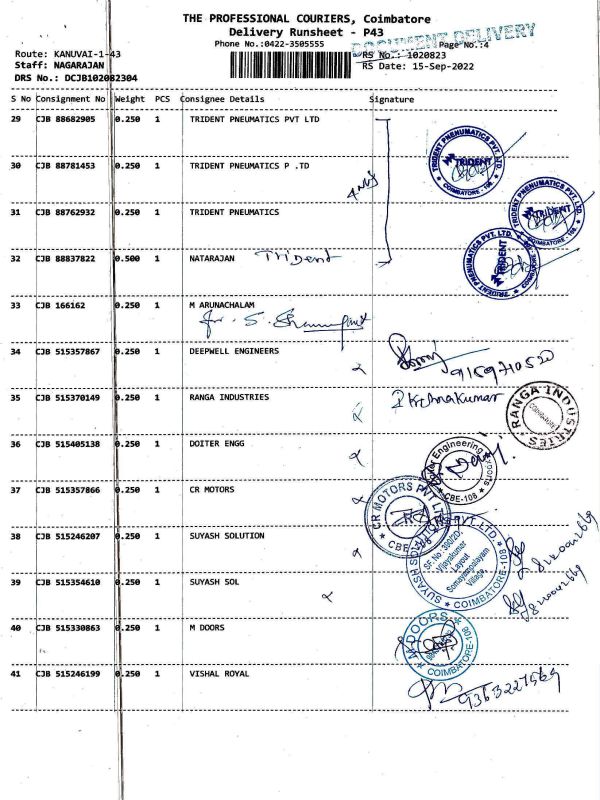 THE PROFESSIONAL COURIERS, Coimbatore
Delivery Runsheet - P43
Phone No.:0422-3505555
DOCUMENT DELIVERY
Page No.:4
Route: KANUVAI-1-43
RS No.: 1020823
Staff: NAGARAJAN
RS Date: 15-Sep-2022
DRS No.: DCJB102082304
S No Consignment No Weight PCS Consignee Details Signature
29 CJB 88682905 0.250 1 TRIDENT PNEUMATICS PVT LTD
TRIDENT PNEUMATICS PVT. LTD. TRIDENT COIMBATORE - 108
30 CJB 88781453 0.250 1 TRIDENT PNEUMATICS P .TD
31 CJB 88762932 0.250 1 TRIDENT PNEUMATICS
TRIDENT PNEUMATICS PVT. LTD. TRIDENT COIMBATORE - 108
32 CJB 88837822 0.500 1 NATARAJAN Trident
TRIDENT PNEUMATICS PVT. LTD. TRIDENT
33 CJB 166162 0.250 1 M ARUNACHALAM
34 CJB 515357867 0.250 1 DEEPWELL ENGINEERS
9159710520
35 CJB 515370149 0.250 1 RANGA INDUSTRIES
RANGA INDUSTRIES COIMBATORE
36 CJB 515405138 0.250 1 DOITER ENGG
Engineering CBE-108
37 CJB 515357866 0.250 1 CR MOTORS
CR MOTORS PVT LTD CBE-108
38 CJB 515246207 0.250 1 SUYASH SOLUTION
SUYASH SOLUTION PVT. LTD. COIMBATORE-108
SF. No: 390/2D,
Vijayakumar
Layout
Somayampalayam
Village,
39 CJB 515354610 0.250 1 SUYASH SOL
40 CJB 515330863 0.250 1 M DOORS
M-DOORS COIMBATORE-108
41 CJB 515246199 0.250 1 VISHAL ROYAL
9363227569